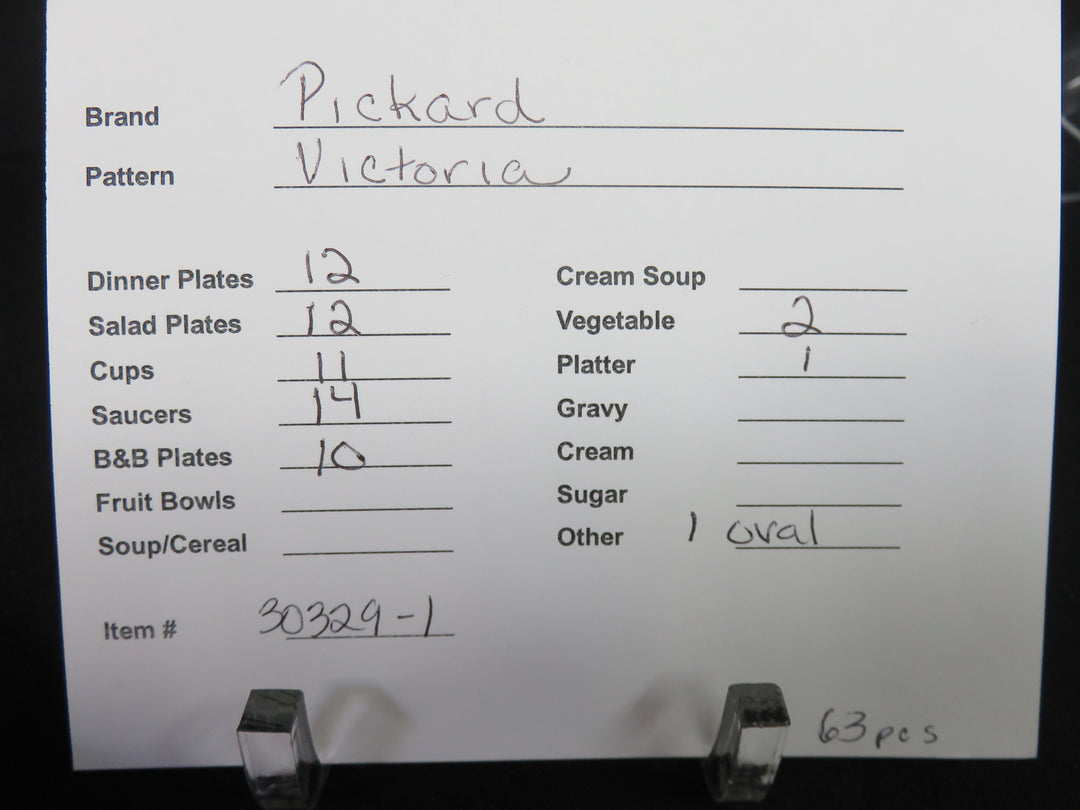 Brand Pickard
Pattern Victoria
Dinner Plates 12
Salad Plates 12
Cups 11
Saucers 14
B&B Plates 10
Fruit Bowls
Soup/Cereal
Cream Soup
Vegetable 2
Platter 1
Gravy
Cream
Sugar
Other 1 oval
Item # 30329-1
63 pcs